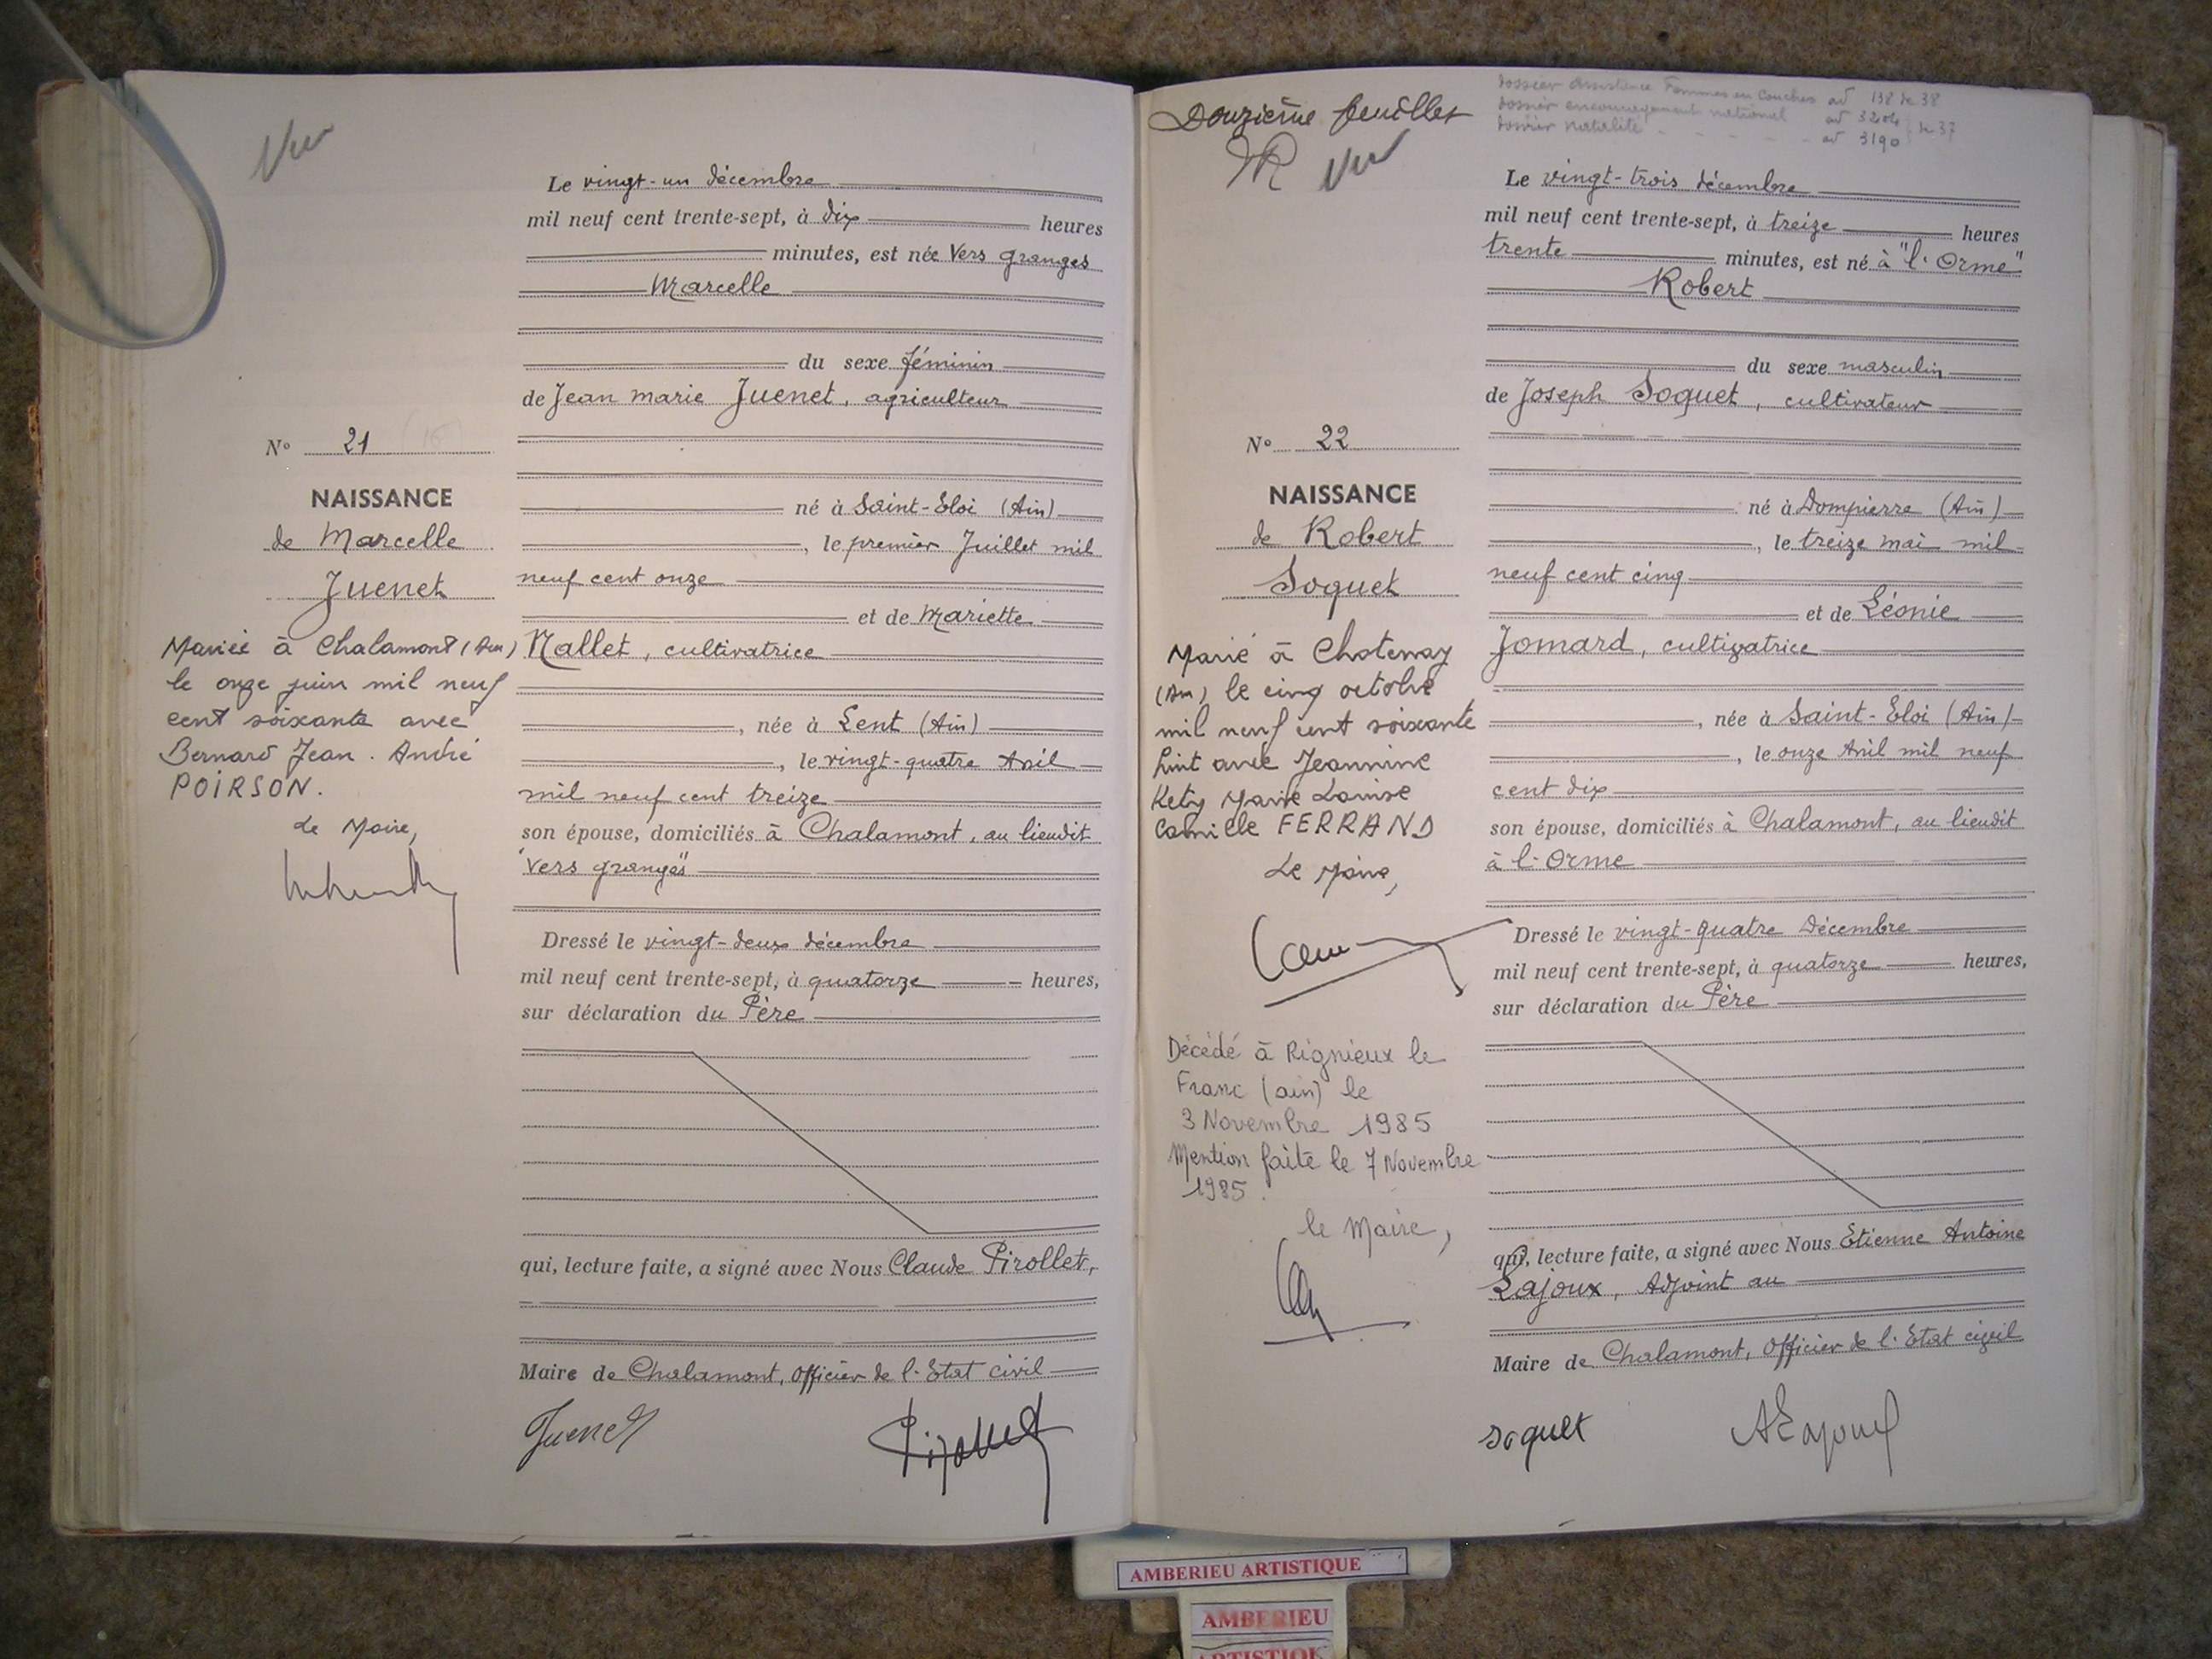 Vu
Le vingt-un décembre
mil neuf cent trente-sept, à dix heures
minutes, est née Vers granges
Marcelle
du sexe féminin
de Jean marie Juenet, agriculteur
N° 21
NAISSANCE
de Marcelle
Juenet
né à Saint-Eloi (Ain)
, le premier Juillet mil
neuf cent onze
et de Mariette
Mallet, cultivatrice
, née à Lent (Ain)
, le vingt-quatre Avril
mil neuf cent treize
son épouse, domiciliés à Chalamont, au lieudit
"Vers granges"
Mariée à Chalamont (Ain)
le onze juin mil neuf
cent soixante avec
Bernard Jean. André
POIRSON.
Le Maire,
Dressé le vingt-deux décembre
mil neuf cent trente-sept, à quatorze heures,
sur déclaration du Père
qui, lecture faite, a signé avec Nous Claude Pirollet,
Maire de Chalamont, Officier de l'Etat civil
Juenet
Pirollet
Douzième feuillet
Vu
dossier Assistance Femmes en Couches ad 138 de 38
dossier encouragement national ad 3204
dossier natalité ad 3190 de 37
Le vingt-trois décembre
mil neuf cent trente-sept, à treize heures
trente minutes, est né à "l'Orme"
Robert
du sexe masculin
de Joseph Soquet, cultivateur
N° 22
NAISSANCE
de Robert
Soquet
né à Dompierre (Ain)
, le treize mai mil
neuf cent cinq
et de Léonie
Jomard, cultivatrice
, née à Saint-Eloi (Ain)
, le onze Avril mil neuf
cent dix
son épouse, domiciliés à Chalamont, au lieudit
à l'Orme
Marié à Chatenay
(Ain) le cinq octobre
mil neuf cent soixante
huit avec Jeannine
Kety Marie Louise
Camille FERRAND
Le Maire,
Décédé à Rignieux le
Franc (ain) le
3 Novembre 1985
Mention faite le 7 Novembre
1985.
le Maire,
Dressé le vingt-quatre Décembre
mil neuf cent trente-sept, à quatorze heures,
sur déclaration du Père
qui, lecture faite, a signé avec Nous Etienne Antoine
Lajoux, Adjoint au
Maire de Chalamont, Officier de l'Etat civil
soquet
AELajoux
AMBERIEU ARTISTIQUE
AMBERIEU